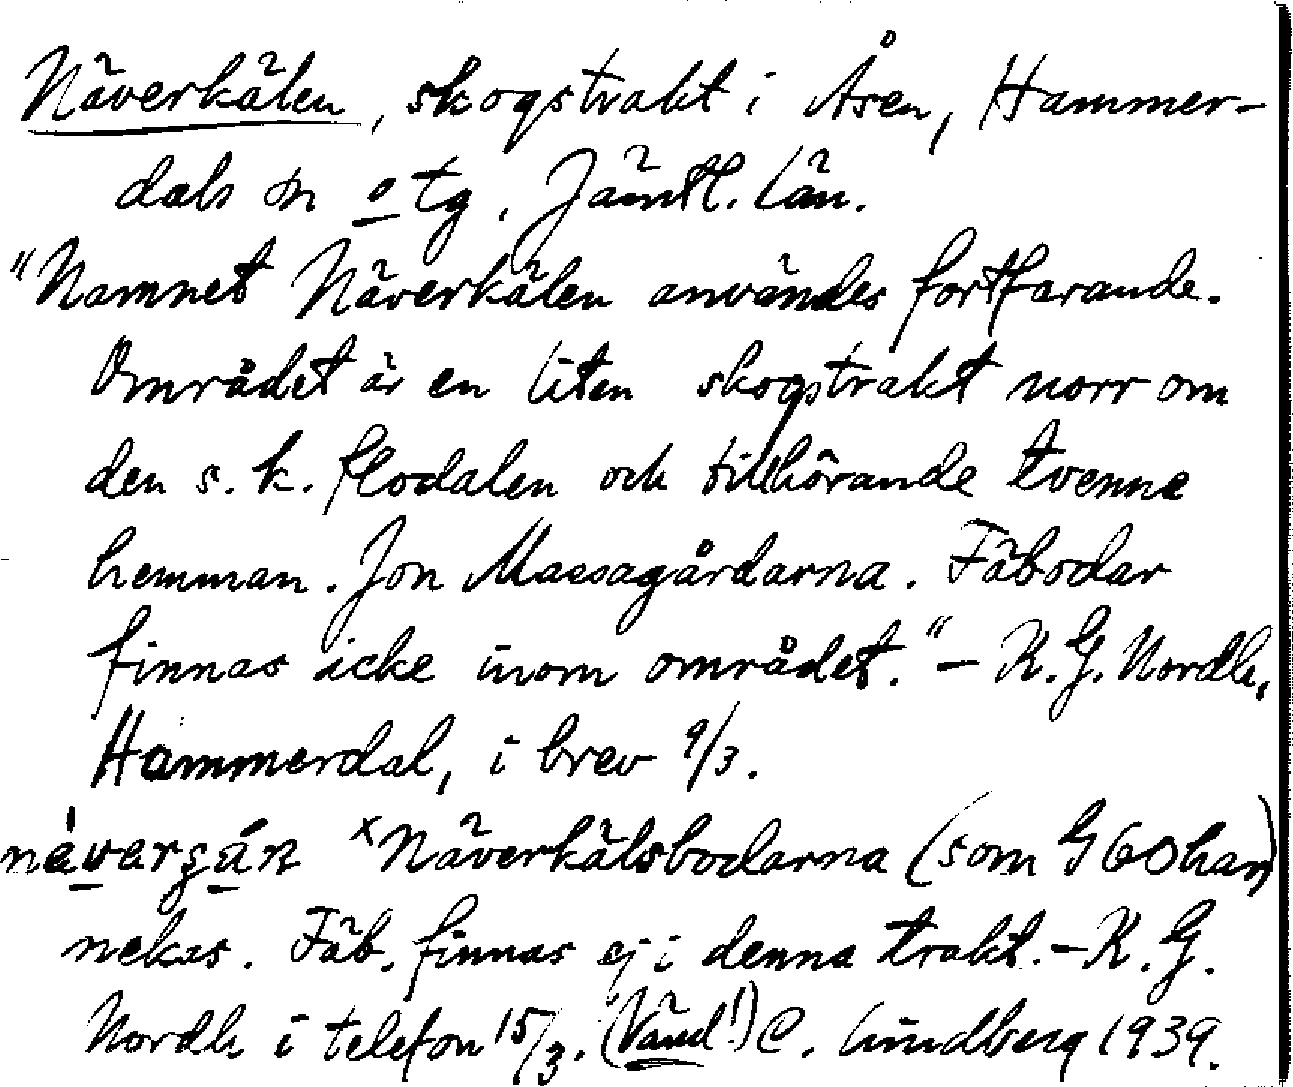 Näverkälen, skogstrakt i Åsen, Hammer-
dals sn o tg. Jämtl. län.
"Namnet Näverkälen användes fortfarande.
Området är en liten skogstrakt norr om
den s.k. flodalen och tillhörande tvenne
hemman. Jon Massagårdarna. Fäbodar
finnas icke inom området." - K. G. Nordh,
Hammerdal, i brev 9/3.
ˣNäverkälsbodarna (som G60 har)
nekas. Fäb. finnas ej i denna trakt. - K. G.
Nordh i telefon 15/3. (Vänd!) C. Lundberg 1939.